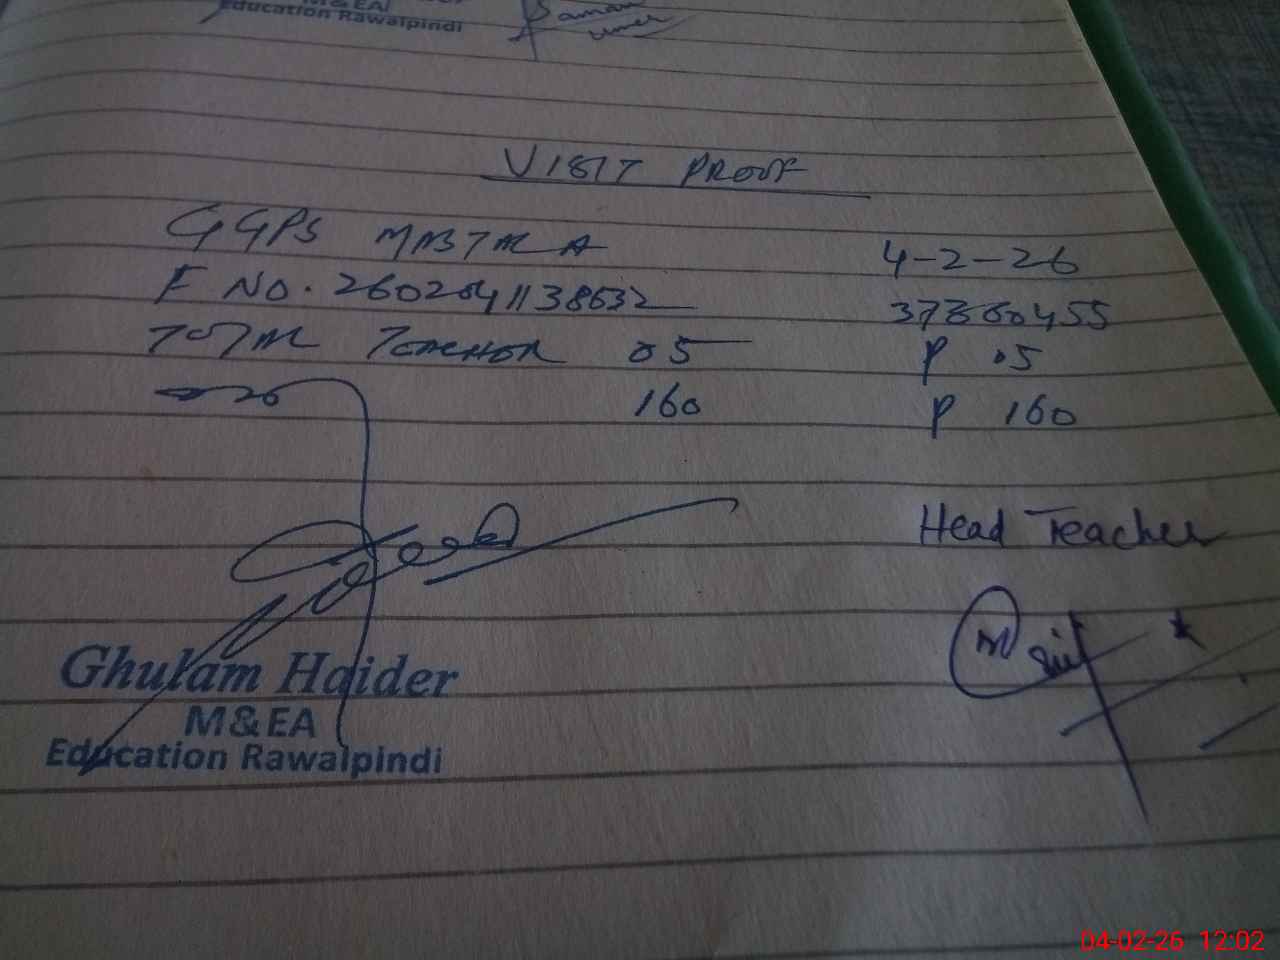 M&EA
Education Rawalpindi
VISIT PROOF
GGPS 4-2-26
F No. 2602041138632 37360455
TOTAL TEACHER 05 P 05
160 P 160
Head Teacher
Ghulam Haider
M&EA
Education Rawalpindi
04-02-26 12:02